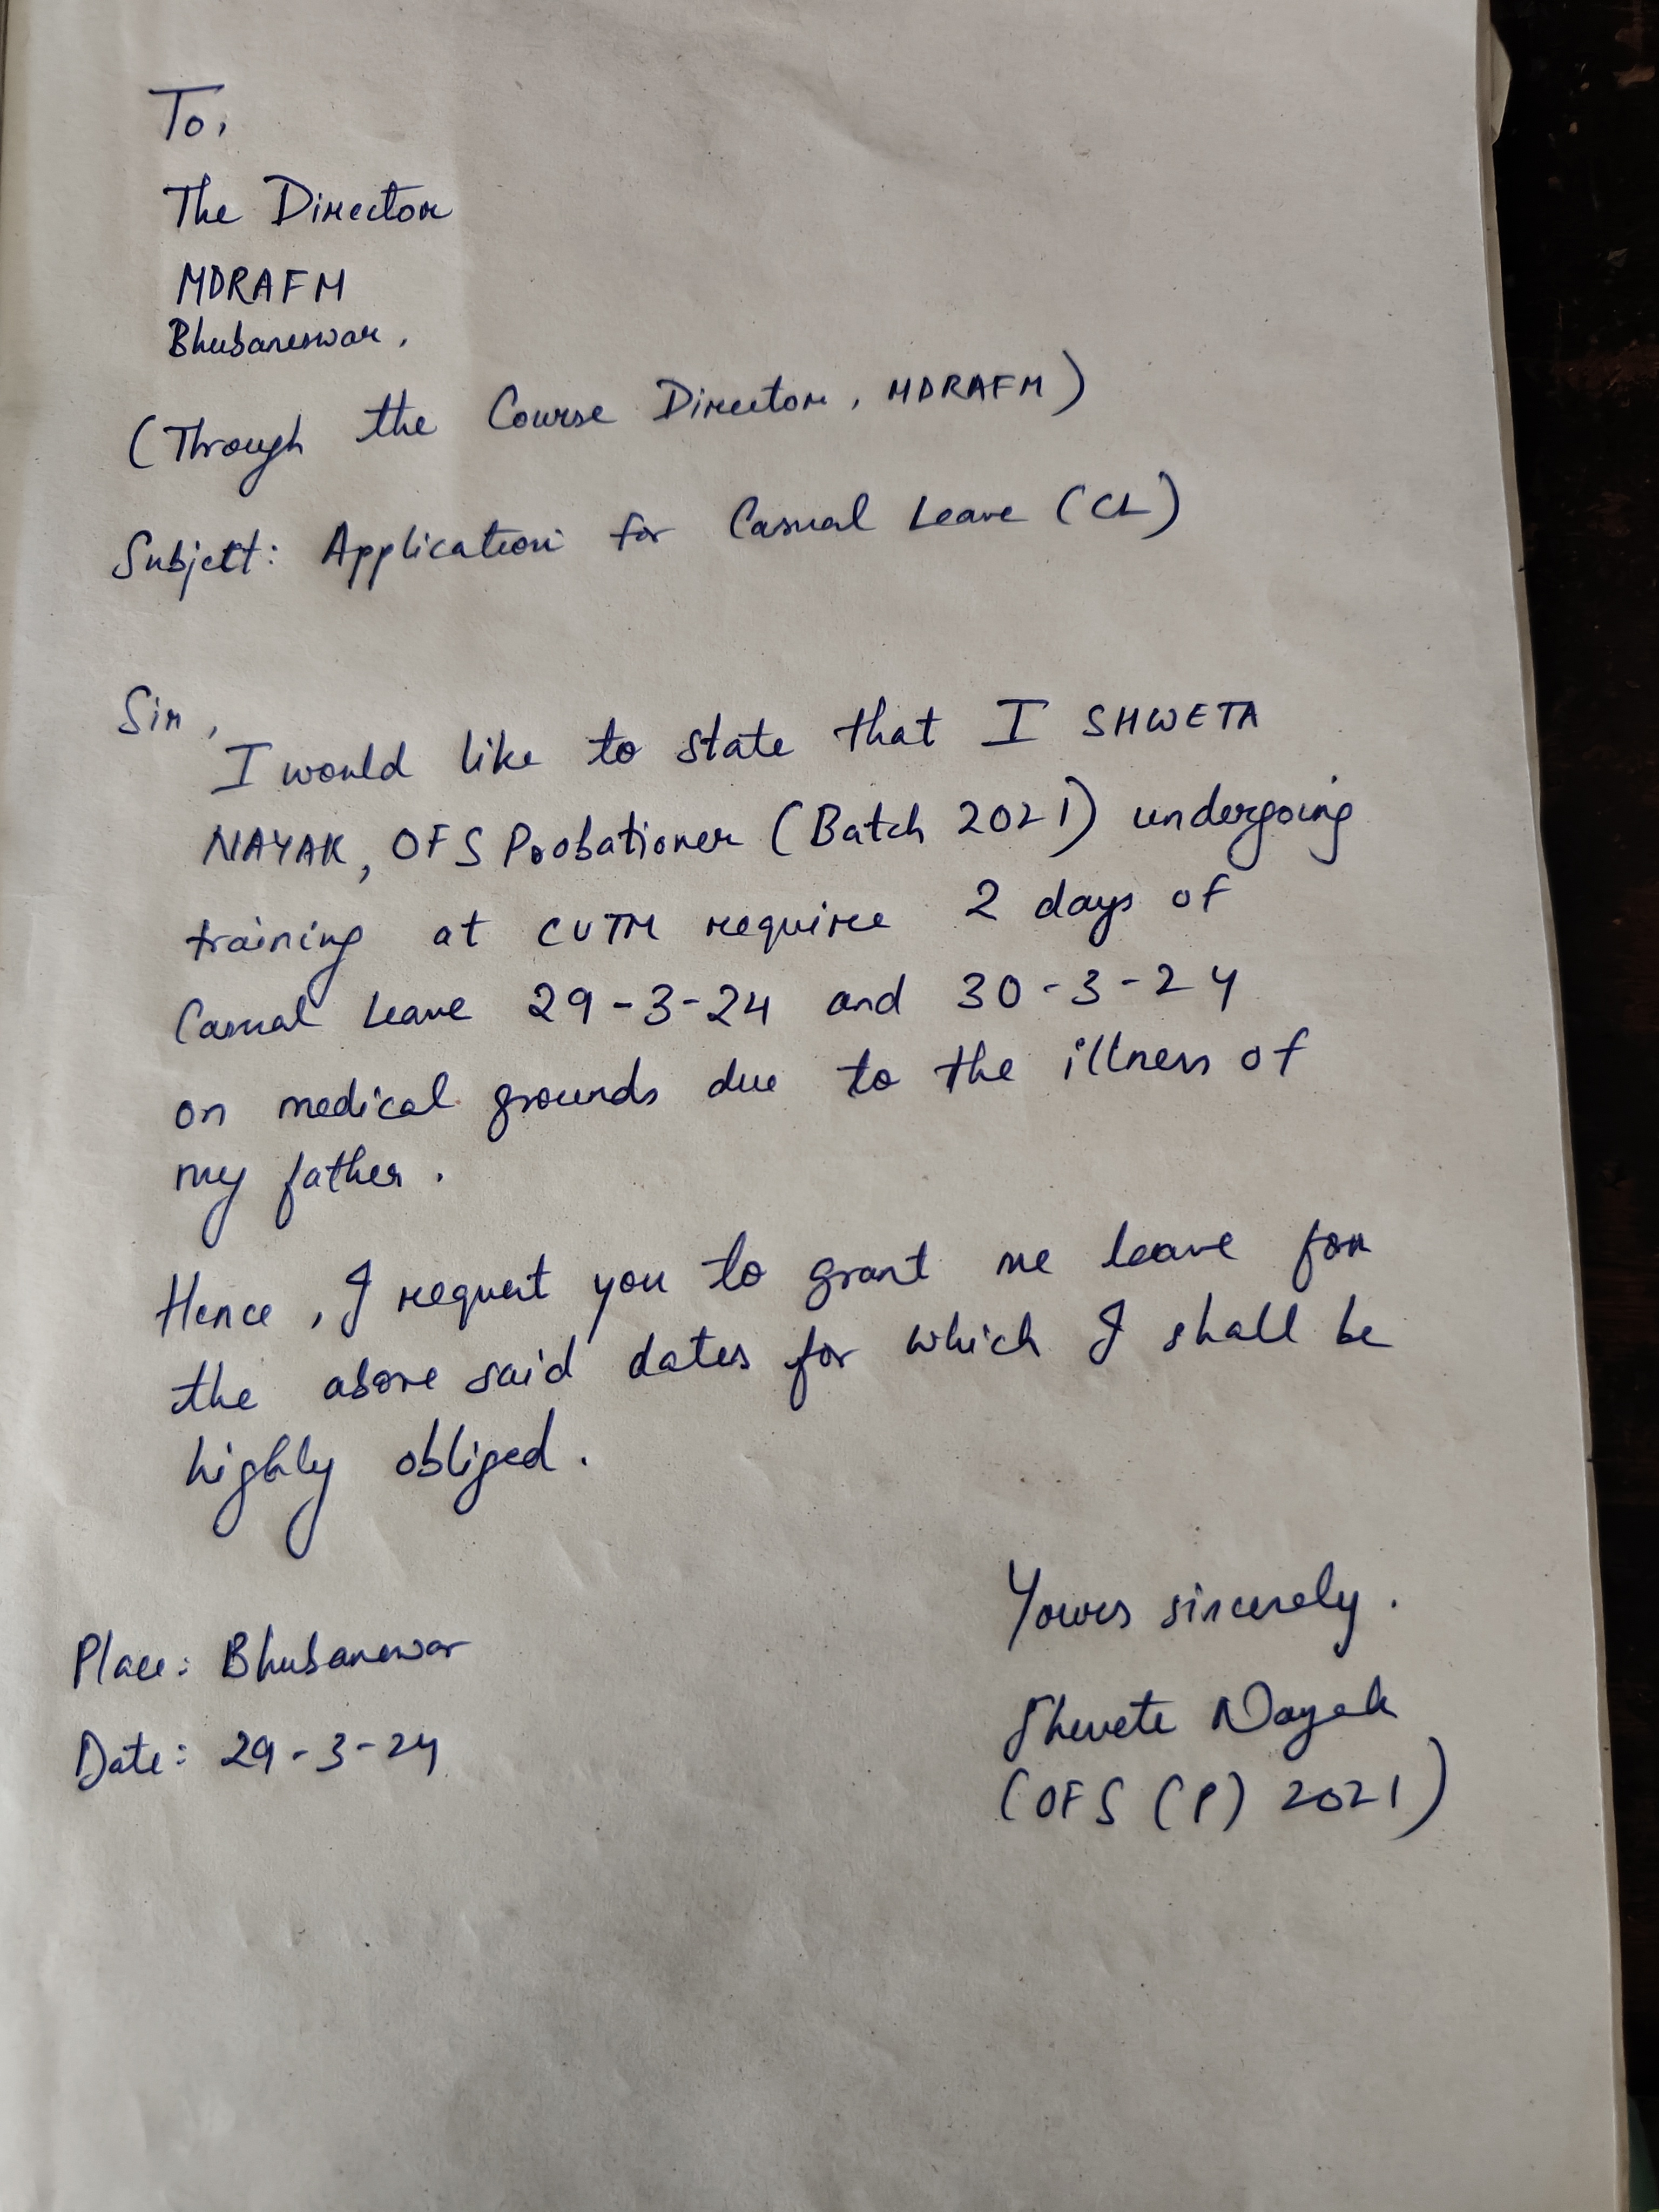 To,
The Director
MDRAFM
Bhubaneswar,
(Through the Course Director, MDRAFM)
Subject: Application for Casual Leave (CL)
Sir,
I would like to state that I SHWETA
NAYAK, OFS Probationer (Batch 2021) undergoing
training at CUTM require 2 days of
Casual Leave 29-3-24 and 30-3-24
on medical grounds due to the illness of
my father.
Hence, I request you to grant me leave for
the above said dates for which I shall be
highly obliged.
Yours sincerely.
Place: Bhubaneswar
Shweta Nayak
Date: 29-3-24
(OFS (P) 2021)